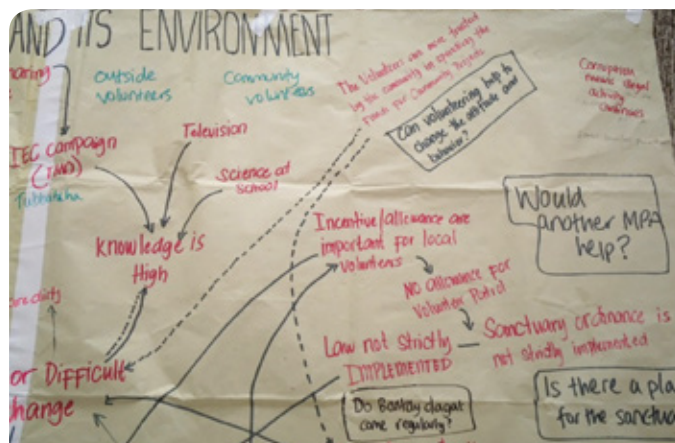 AND ITS ENVIRONMENT
outside
volunteers
Community
volunteers
The Volunteers are more trusted
by the community by
Funds for Community Projects
Can volunteering help to
change the attitude and
behavior?
Corruption
means illegal
activity
continues
IEC campaign
Tubbataha
Television
Science at
School
Knowledge is
High
Incentive/allowance are
important for local
volunteers
Would
another MPA
help?
No allowance for
Volunteer Patrol
Law not Strictly
IMPLEMENTED
Sanctuary ordinance is
not strictly implemented
or Difficult
hange
Do Bantay dagat
come regularly?
Is there a pla
for the sanctua